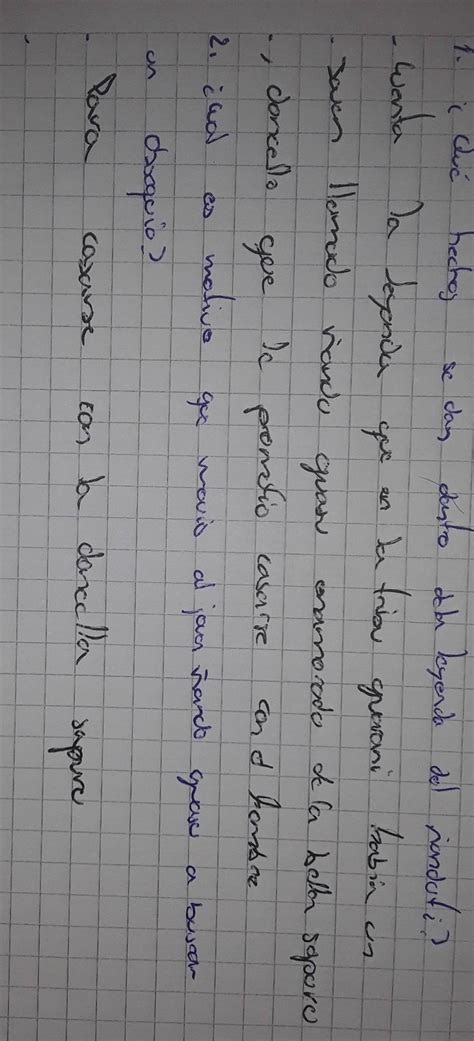 1. ¿Qué hechos se dan dentro dela leyenda del ñanduti?
- Cuenta la leyenda que en la tribu guarani habia un
- Joven llamado ñandu guasu enamorado de la bella sapuru
- , doncella que le prometio casarse con el hombre
2. ¿cual es motivo que movio al joven ñandu guasu a buscar
un obsequio?
- Para casarse con la doncella sapuru